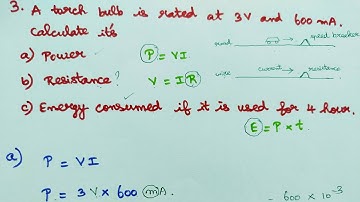 3. A torch bulb is rated at 3V and 600 mA.
calculate its
a) Power P = VI
b) Resistance? V = IR
c) Energy consumed if it is used for 4 hour.
E = P × t.
road speed breaker
wire current → resistance
a) P = VI
P = 3 V × 600 mA.
= 600 × 10⁻³